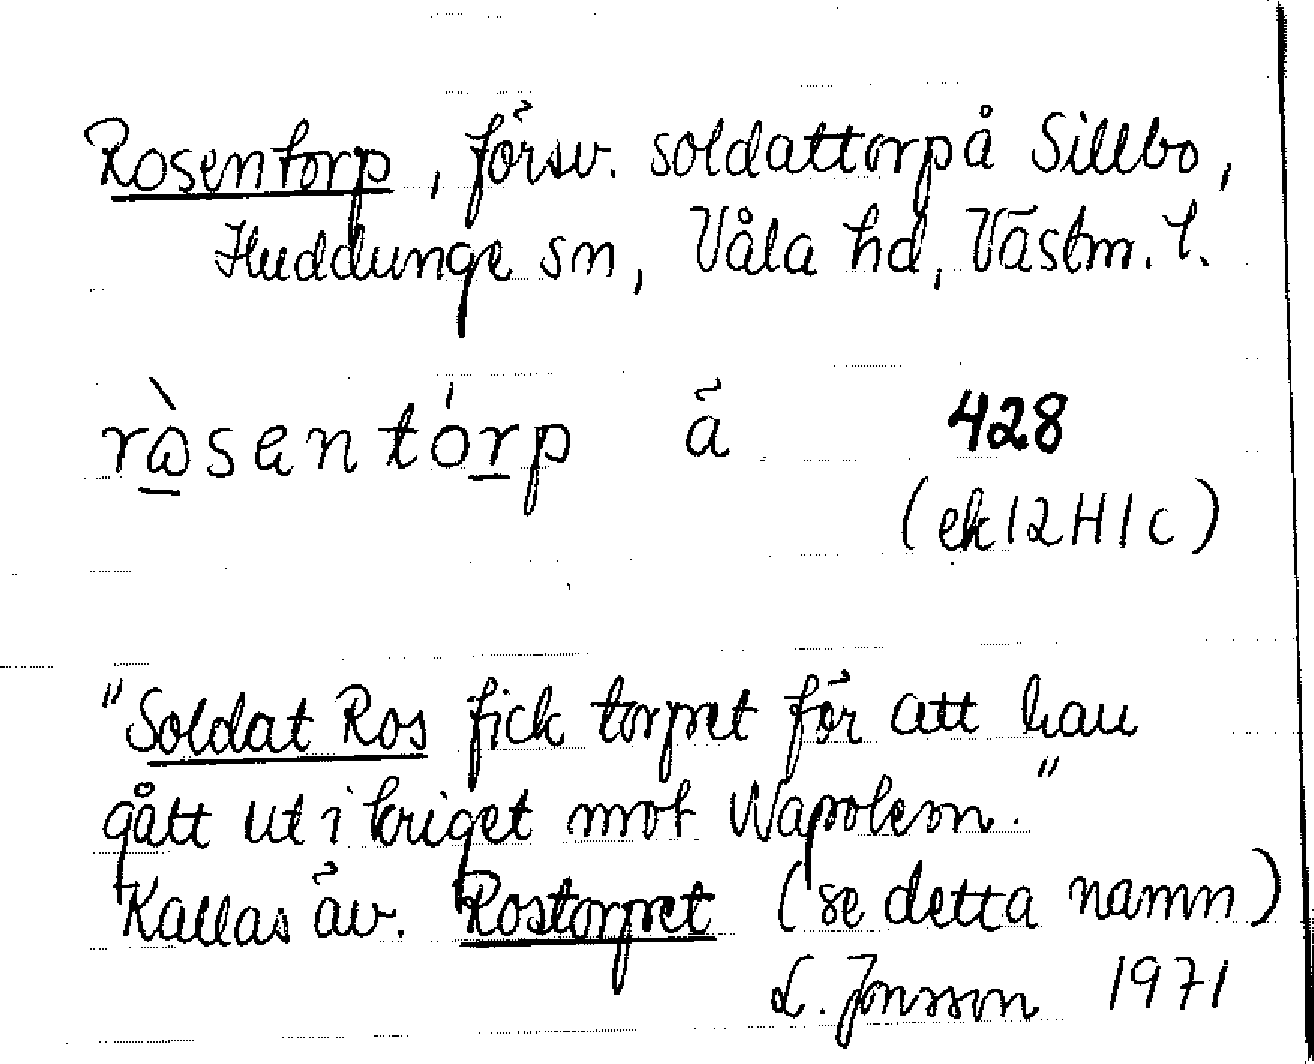 Rosentorp, försv. soldattorp å Sillbo,
Huddunge sn, Våla hd, Västm. l.
rò̱sentóṟp ä 428
(ek 12H1c)
"Soldat Ros fick torpet för att han
gått ut i kriget mot Napoleon."
Kallas äv. Rostorpet (se detta namn)
L. Jonsson 1971